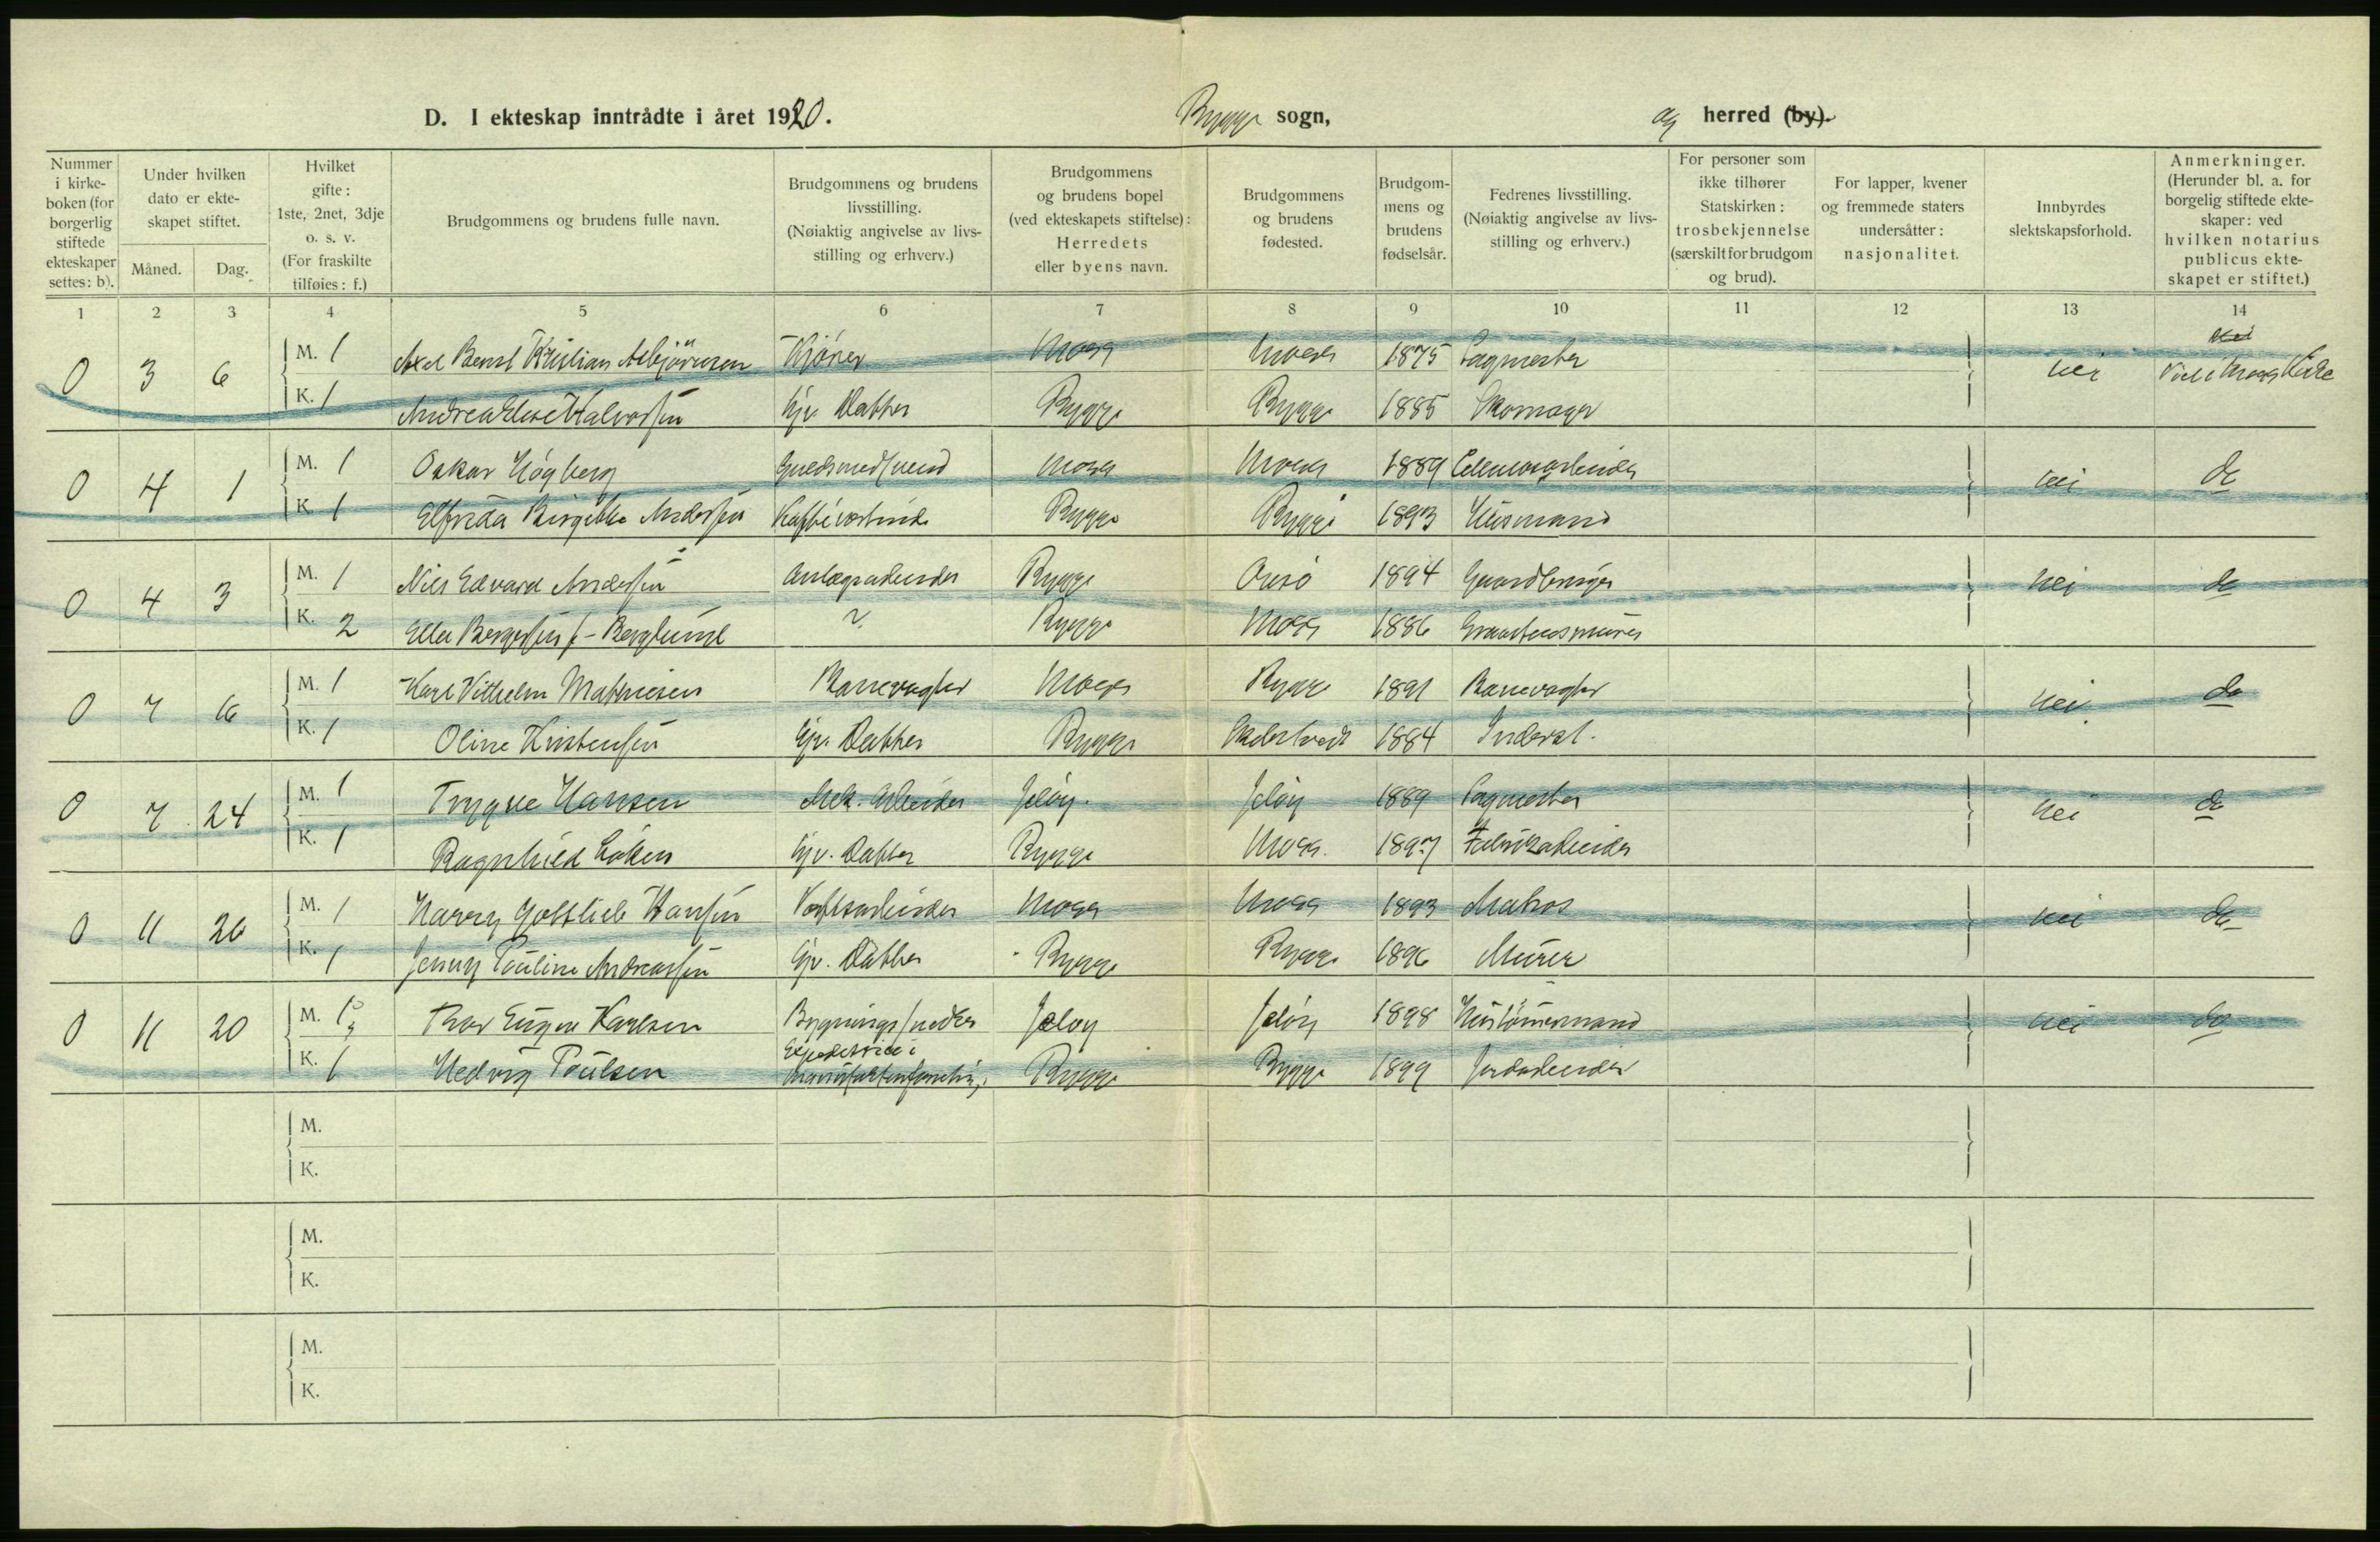 D. I ekteskap inntrådte i året 1920.
Rygge sogn,
og herred (by).
Nummer i kirke-boken (for borgerlig stiftede ekteskaper settes: b).
Under hvilken dato er ekte-skapet stiftet.
Måned.
Dag.
Hvilket gifte: 1ste, 2net, 3dje o. s. v. (For fraskilte tilføies: f.)
Brudgommens og brudens fulle navn.
Brudgommens og brudens livsstilling. (Nøiaktig angivelse av livs-stilling og erhverv.)
Brudgommens og brudens bopel (ved ekteskapets stiftelse): Herredets eller byens navn.
Brudgommens og brudens fødested.
Brudgom-mens og brudens fødselsår.
Fedrenes livsstilling. (Nøiaktig angivelse av livs-stilling og erhverv.)
For personer som ikke tilhører Statskirken: trosbekjennelse (særskilt for brudgom og brud).
For lapper, kvener og fremmede staters undersåtter: nasjonalitet.
Innbyrdes slektskapsforhold.
Anmerkninger. (Herunder bl. a. for borgelig stiftede ekte-skaper: ved hvilken notarius publicus ekte-skapet er stiftet.)
1 2 3 4 5 6 7 8 9 10 11 12 13 14
0 3 6 M. 1 Axel Bernt Kristian Asbjörnsen Kjörer Moss Moss 1875 Sagmester nei Viet i Moss Kirke
K. 1 Andrea Elise Halvorsen Gjv. Datter Rygge Rygge 1885 Skomager
0 4 1 M. 1 Oskar Högberg Guldsmedsvend Moss Moss 1889 nei do
K. 1 Elfrida Birgitte Andersen Kafévertinde Rygge Rygge 1893 Husmand
0 4 3 M. 1 Nils Edvard Andersen Anlægsarbeider Rygge Onsö 1894 Gaardbruger nei do
K. 2 Ella f. Berglund Rygge Moss 1886
0 7 6 M. 1 Karl Vilhelm Mathiesen Banevogter Moss Rygge 1891 Banevogter nei do
K. 1 Oline Kristensen Gjv. Datter Rygge Skedsted 1884 Inderst.
0 7 24 M. 1 Trygve Hansen Mek. Arbeider Jelöy. Jelöy 1889 Sagmester nei do
K. 1 Ragnhild Löken Gjv. Datter Rygge Moss. 1897 Fabrikarbeider
0 11 26 M. 1 Harry Gottlieb Hansen Verftsarbeider Moss Moss 1893 Matros nei do
K. 1 Jenny Pauline Andreassen Gjv. Datter Rygge Rygge 1896 Murer
0 11 20 M. 1 Thor Eugen Karlsen Bygningssnedker Jeløy Jelöy 1898 Hustömermand nei do
K. 1 Hedvig Paulsen Expeditrice i Manufakturforretning. Rygge Rygge 1899 Jordarbeider
M.
K.
M.
K.
M.
K.